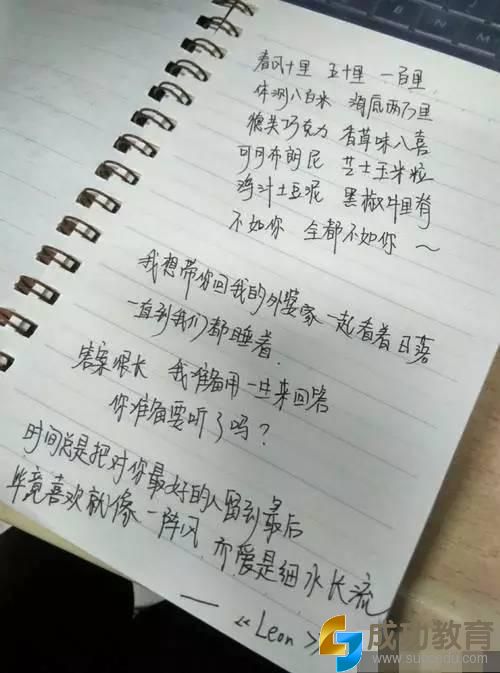 春风十里 五十里 一百里
体测八百米 海底两万里
德芙巧克力 香草味八喜
可可布朗尼 芝士玉米粒
鸡汁土豆泥 黑椒牛里脊
不如你 全都不如你～
我想带你回我的外婆家 一起看着日落
一直到我们都睡着
答案很长 我准备用一生来回答
你准备要听了吗？
时间总是把对你最好的人留到最后
毕竟喜欢就像一阵风 而爱是细水长流
—《Leon》
成功教育
www.succedu.com